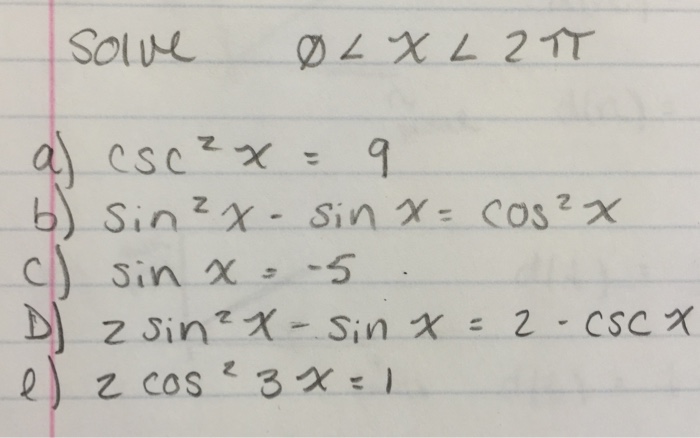 Solve 0 < x < 2π
a) csc² x = 9
b) sin² x - sin x = cos² x
c) sin x = -5
D) 2 sin² x - sin x = 2 - csc x
e) 2 cos² 3x = 1